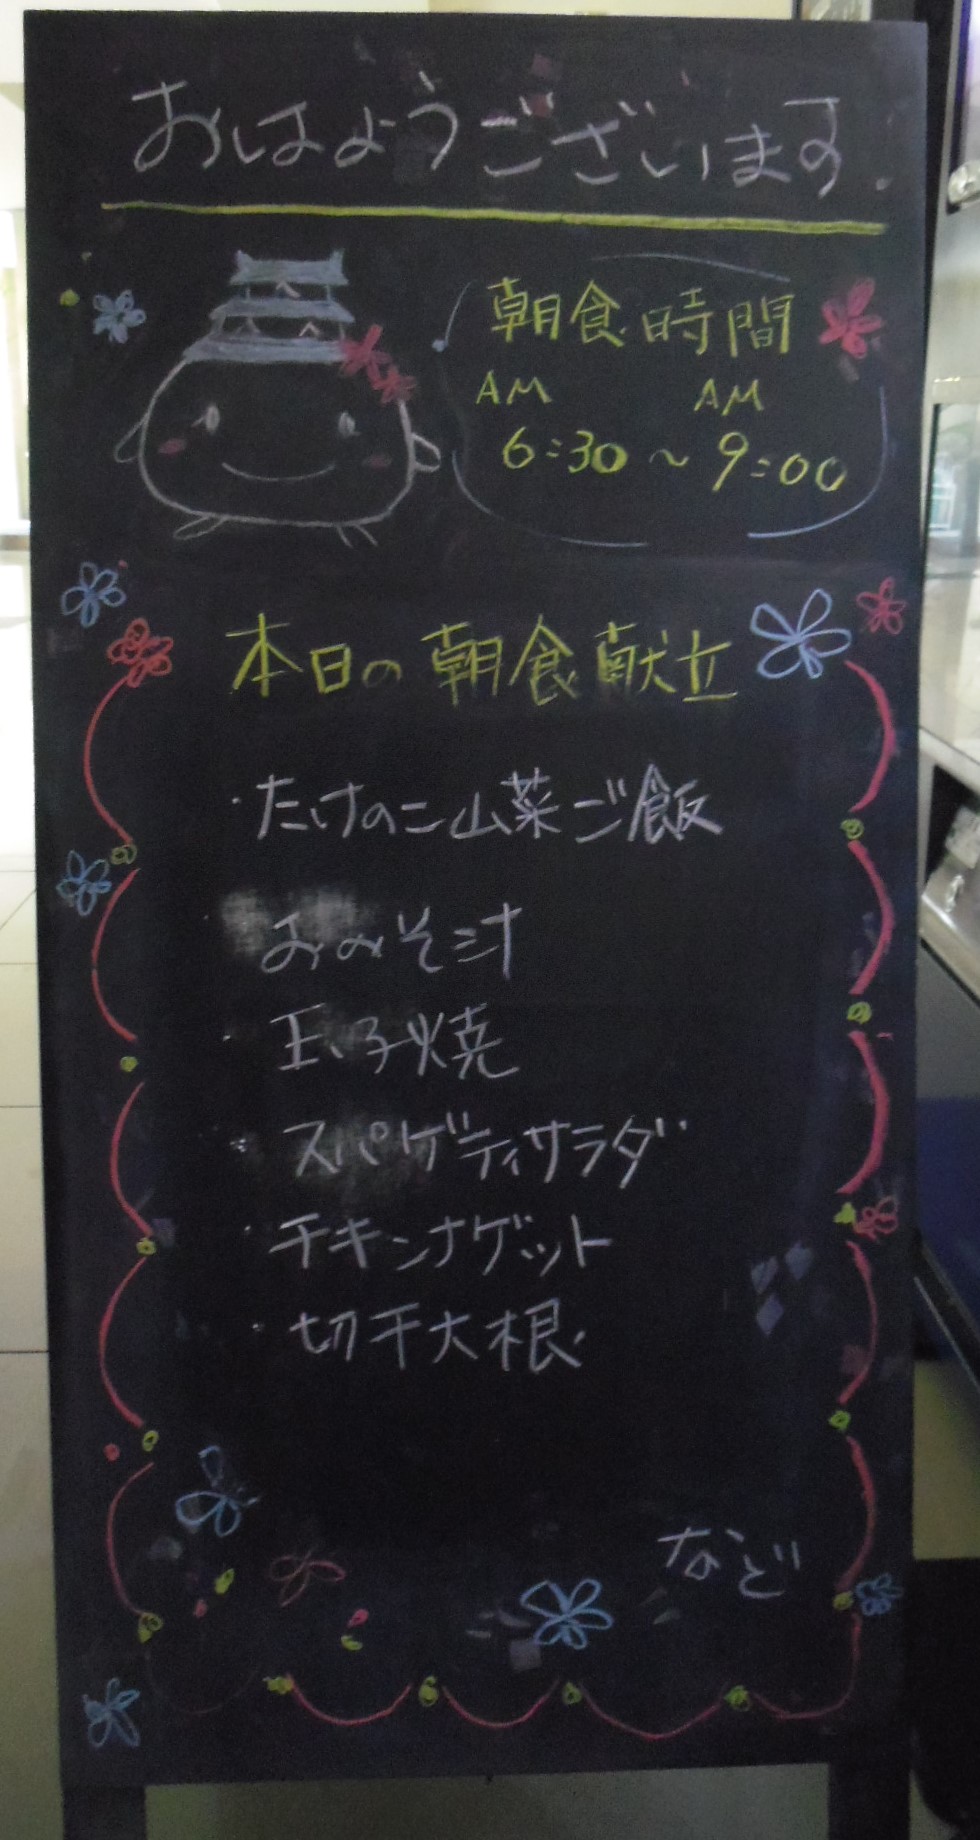 おはようございます
朝食時間
AM AM
6:30～9:00
本日の朝食献立
・たけのこ山菜ご飯
おみそ汁
・玉子焼
・スパゲティサラダ
・チキンナゲット
・切干大根
など